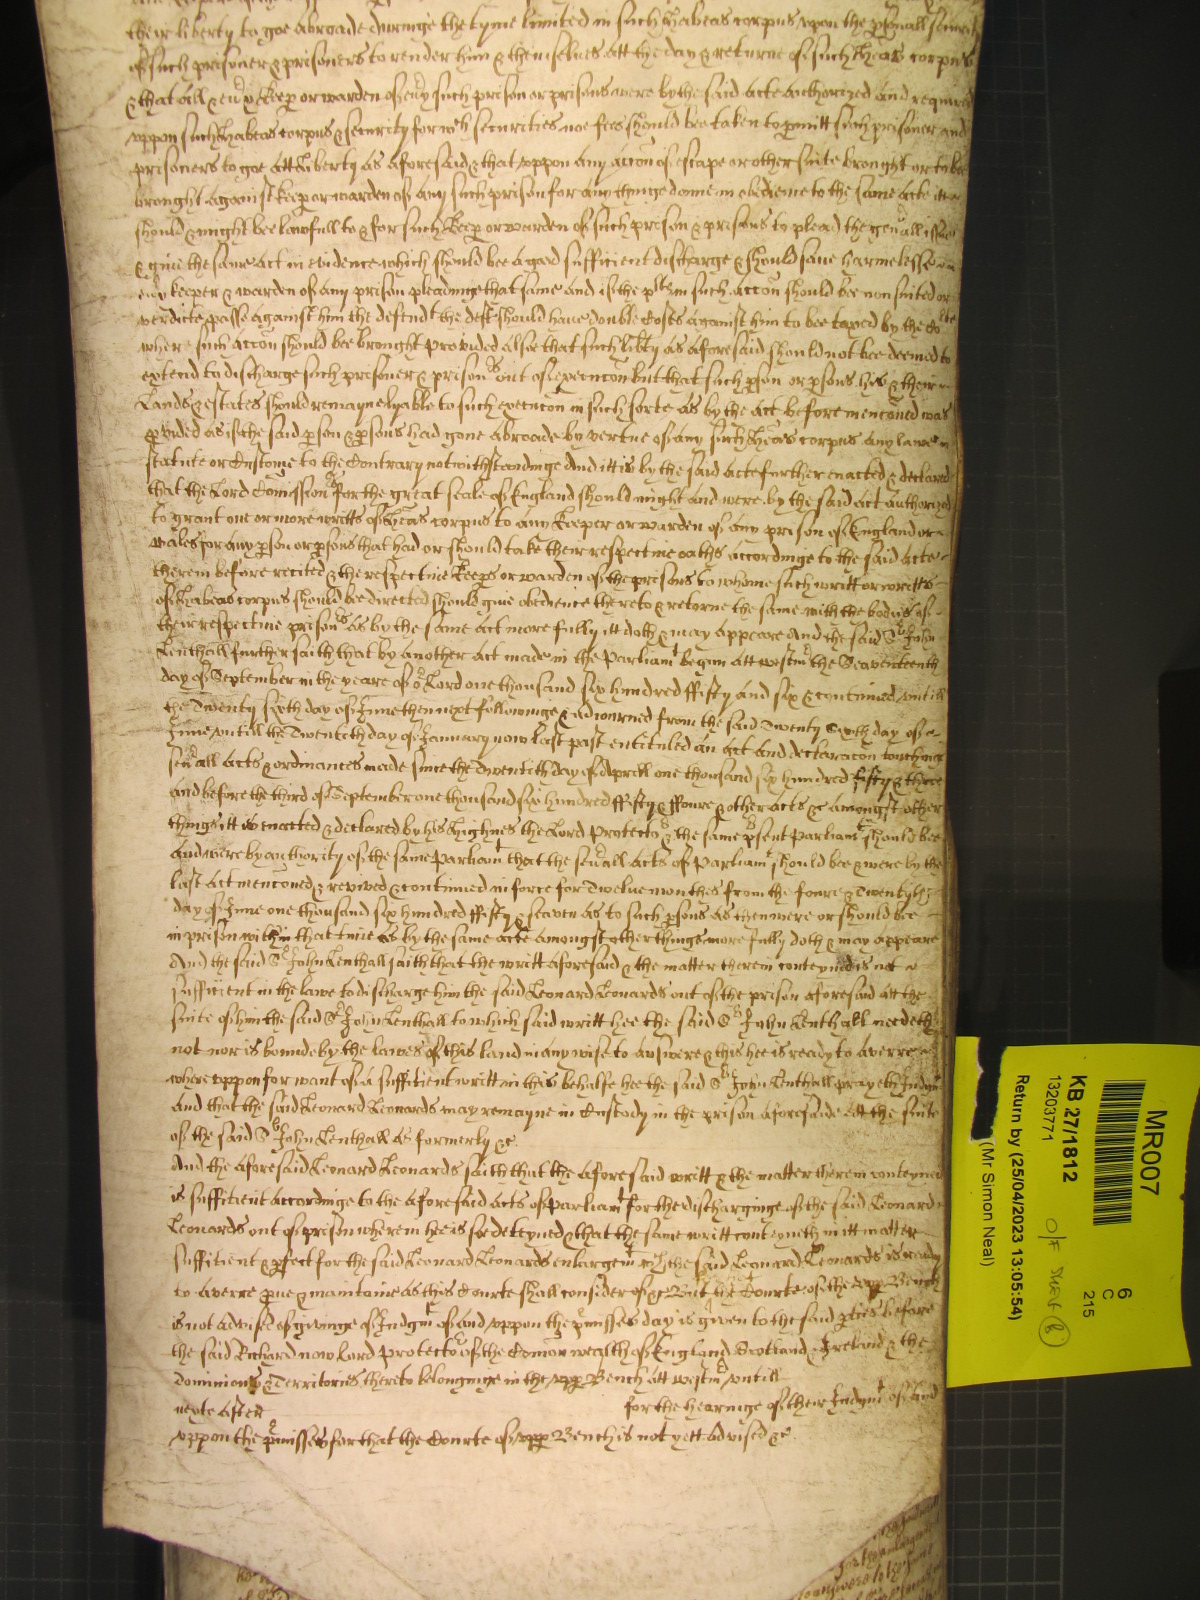 their liberty to goe abroade duringe the tyme limited in such habeas corpus upon the psonall
of such prisoner & prisoners to render him & themselves att the day & returne of such heas corpus
& that all & evy Keep or warden of evy such prison or prisons were by the said acte authorized and required
uppon such habeas corpus & security for wch securities noe fees should bee taken to pmitt such prisoner and
prisoners to goe att liberty as aforesaid & that uppon any accon of escape or other suite brought or to bee
brought against keep or warden of any such prison for any thinge donne in obedience to the same acte itt
should & might bee lawfull to & for such Keep or warden of such prison & prisons to plead the genall issue
& give the same act in evidence which should bee a good sufficient discharge & should save harmelesse
evy keeper & warden of any prison pleadinge that same and if the plt in such accon should bee nonsuited or
verdicte passe against him the defendt the deft should have double Costes against him to bee taxed by the
where such accon should bee brought provided alsoe that such libty as aforesaid should not bee deemed to
extend to discharge such prisoner & prisonrs out of execucon but that such pson or psons his & their
Lands & estates should remayne lyable to such execucon in such sorte as by the act before menconed was
pvided as if the said pson & psons had gone abroade by vertue of any such heas corpus any lawe
statute or Custome to the Contrary notwithstandinge And itt is by the said acte further enacted & declared
that the Lord Comissionrs for the great seale of England should might and were by the said act authorized
to grant one or more writts of heas corpus to any Keeper or warden of any prison of England or
Wales for any pson or psons that had or should take their respective oaths accordinge to the said acte
therein before recited & the respective Keeps or warden of the prisons to whome such writt or writts
of habeas corpus should bee directed should give obedience thereto & retorne the same with the bodies of
their respective prisonrs as by the same act more fully itt doth & may appeare And the said Sr John
Lenthall further saith that by another act made in the Parliamt begun att westmr the Seaventeenth
day of September in the yeare of or Lord one thousand six hundred ffifty and six & continued untill
the Twenty sixth day of June then next followinge & adiourned from the said Twenty sixth day of
June untill the Twentieth day of January now last past entituled an act and declaracon touching
sevall acts & ordinances made since the Twentith day of Aprill one thousand six hundred fifty & three
and before the third of September one thousand six hundred ffifty & ffoure & other acts &c amongst other
things itt is enacted & declared by his highnes the Lord Protector & the same psent Parliamt should bee
and were by authority of the same Parliamt that the sevall acts of Parliamt should bee & were by the
last act menconed & revived & continued in force for Twelve monthes from the foure & Twentyth
day of June one thousand six hundred ffifty & seaven as to such psons as then were or should bee
in prison within that time as by the same acte amongst other things more fully doth & may appeare
And the said Sr John Lenthall saith that the writt aforesaid & the matter therein conteyned is not
sufficient in the lawe to discharge him the said Leonard Leonards out of the prison aforesaid att the
suite of him the said Sr John Lenthall to which said writt hee the said Sr John Lenthall needeth
not nor is bounde by the lawes of this land in any wise to answere & this hee is ready to averre
whereuppon for want of a sufficient writt in this behalfe hee the said Sr John Lenthall prayeth Judgmt
And that the said Leonard Leonards may remayne in Custody in the prison aforesaide att the suite
of the said Sr John Lenthall as formerly &c.
And the aforesaid Leonard Leonards saith that the aforesaid writt & the matter therein conteyned
is sufficient accordinge to the aforesaid acts of Parliamt for the discharginge of the said Leonard
Leonards out of prison wherein hee is soe deteyned & that the same writt conteyneth in itt matter
sufficient & pfect for the said Leonard Leonards enlargemt wch the said Leonard Leonards is ready
to averre pve & maintaine as this Courte shall consider of &c But the Courte of the upp Bench
is not advised of givinge of Judgmt of and uppon the pmisses day is given to the said pties before
the said Richard now Lord protector of the Comon wealth of England Scotland & Ireland & the
dominions & Territories thereto belonginge in the upp Bench att westmr untill
next after for the hearinge of their Judgmt of and
uppon the pmisses for that the Courte of upp Bench is not yett advised &c.
MR007
6
C
215
KB 27/1812
13203771
Return by (25/04/2023 13:05:54)
(Mr Simon Neal)